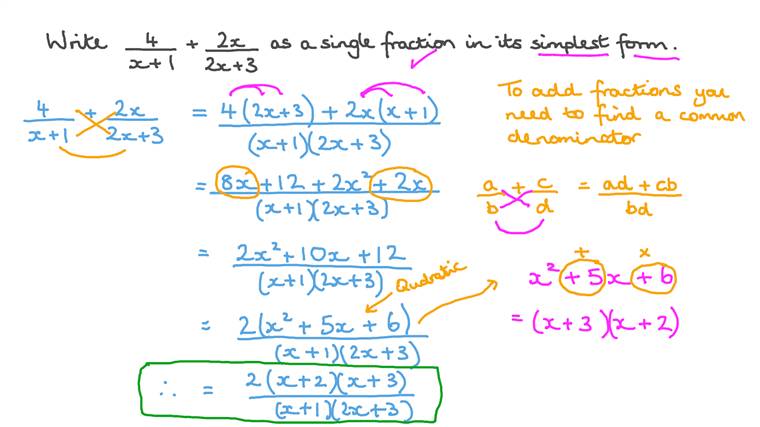 Write 4/(x+1) + 2x/(2x+3) as a single fraction in its simplest form.
4/(x+1) + 2x/(2x+3) = (4(2x+3) + 2x(x+1))/((x+1)(2x+3))
= (8x + 12 + 2x² + 2x)/((x+1)(2x+3))
= (2x² + 10x + 12)/((x+1)(2x+3))
Quadratic
= 2(x² + 5x + 6)/((x+1)(2x+3))
∴ = 2(x+2)(x+3)/((x+1)(2x+3))
To add fractions you
need to find a common
denominator
a/b + c/d = (ad + cb)/bd
+ ×
x² + 5x + 6
= (x+3)(x+2)